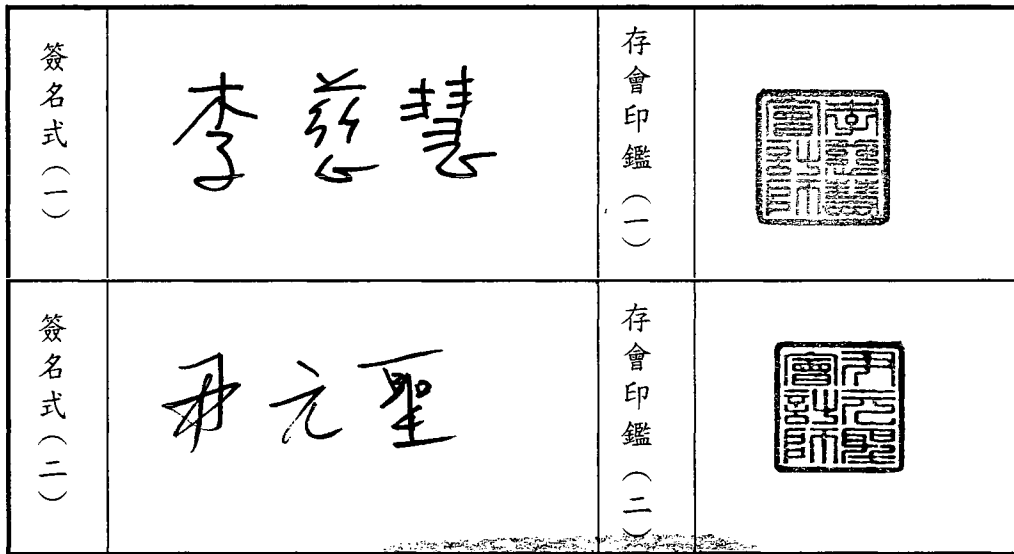 簽名式(一)
李慈慧
存會印鑑(一)
李慈慧會計師
簽名式(二)
尹元聖
存會印鑑(二)
尹元聖會計師